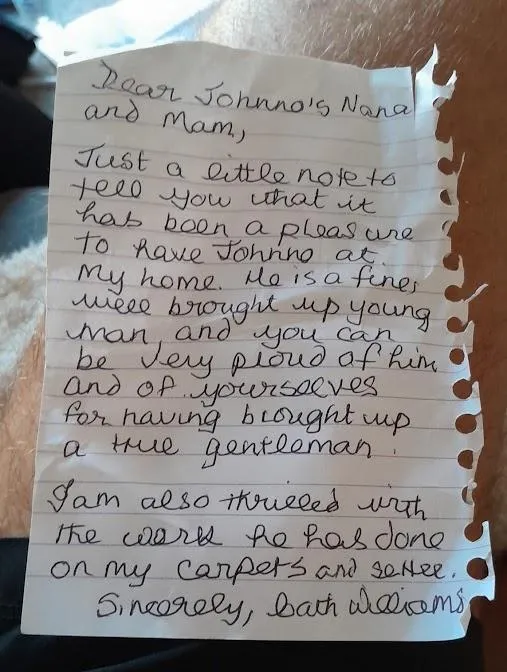 Dear Johnno's Nana
and Mam,
Just a little note to
tell you what it
has been a pleasure
to have Johnno at
my home. He is a fine,
well brought up young
man, and you can
be very proud of him
and of yourselves
for having brought up
a true gentleman.
I am also thrilled with
the work he has done
on my carpets and settee.
Sincerely, Cath Williams